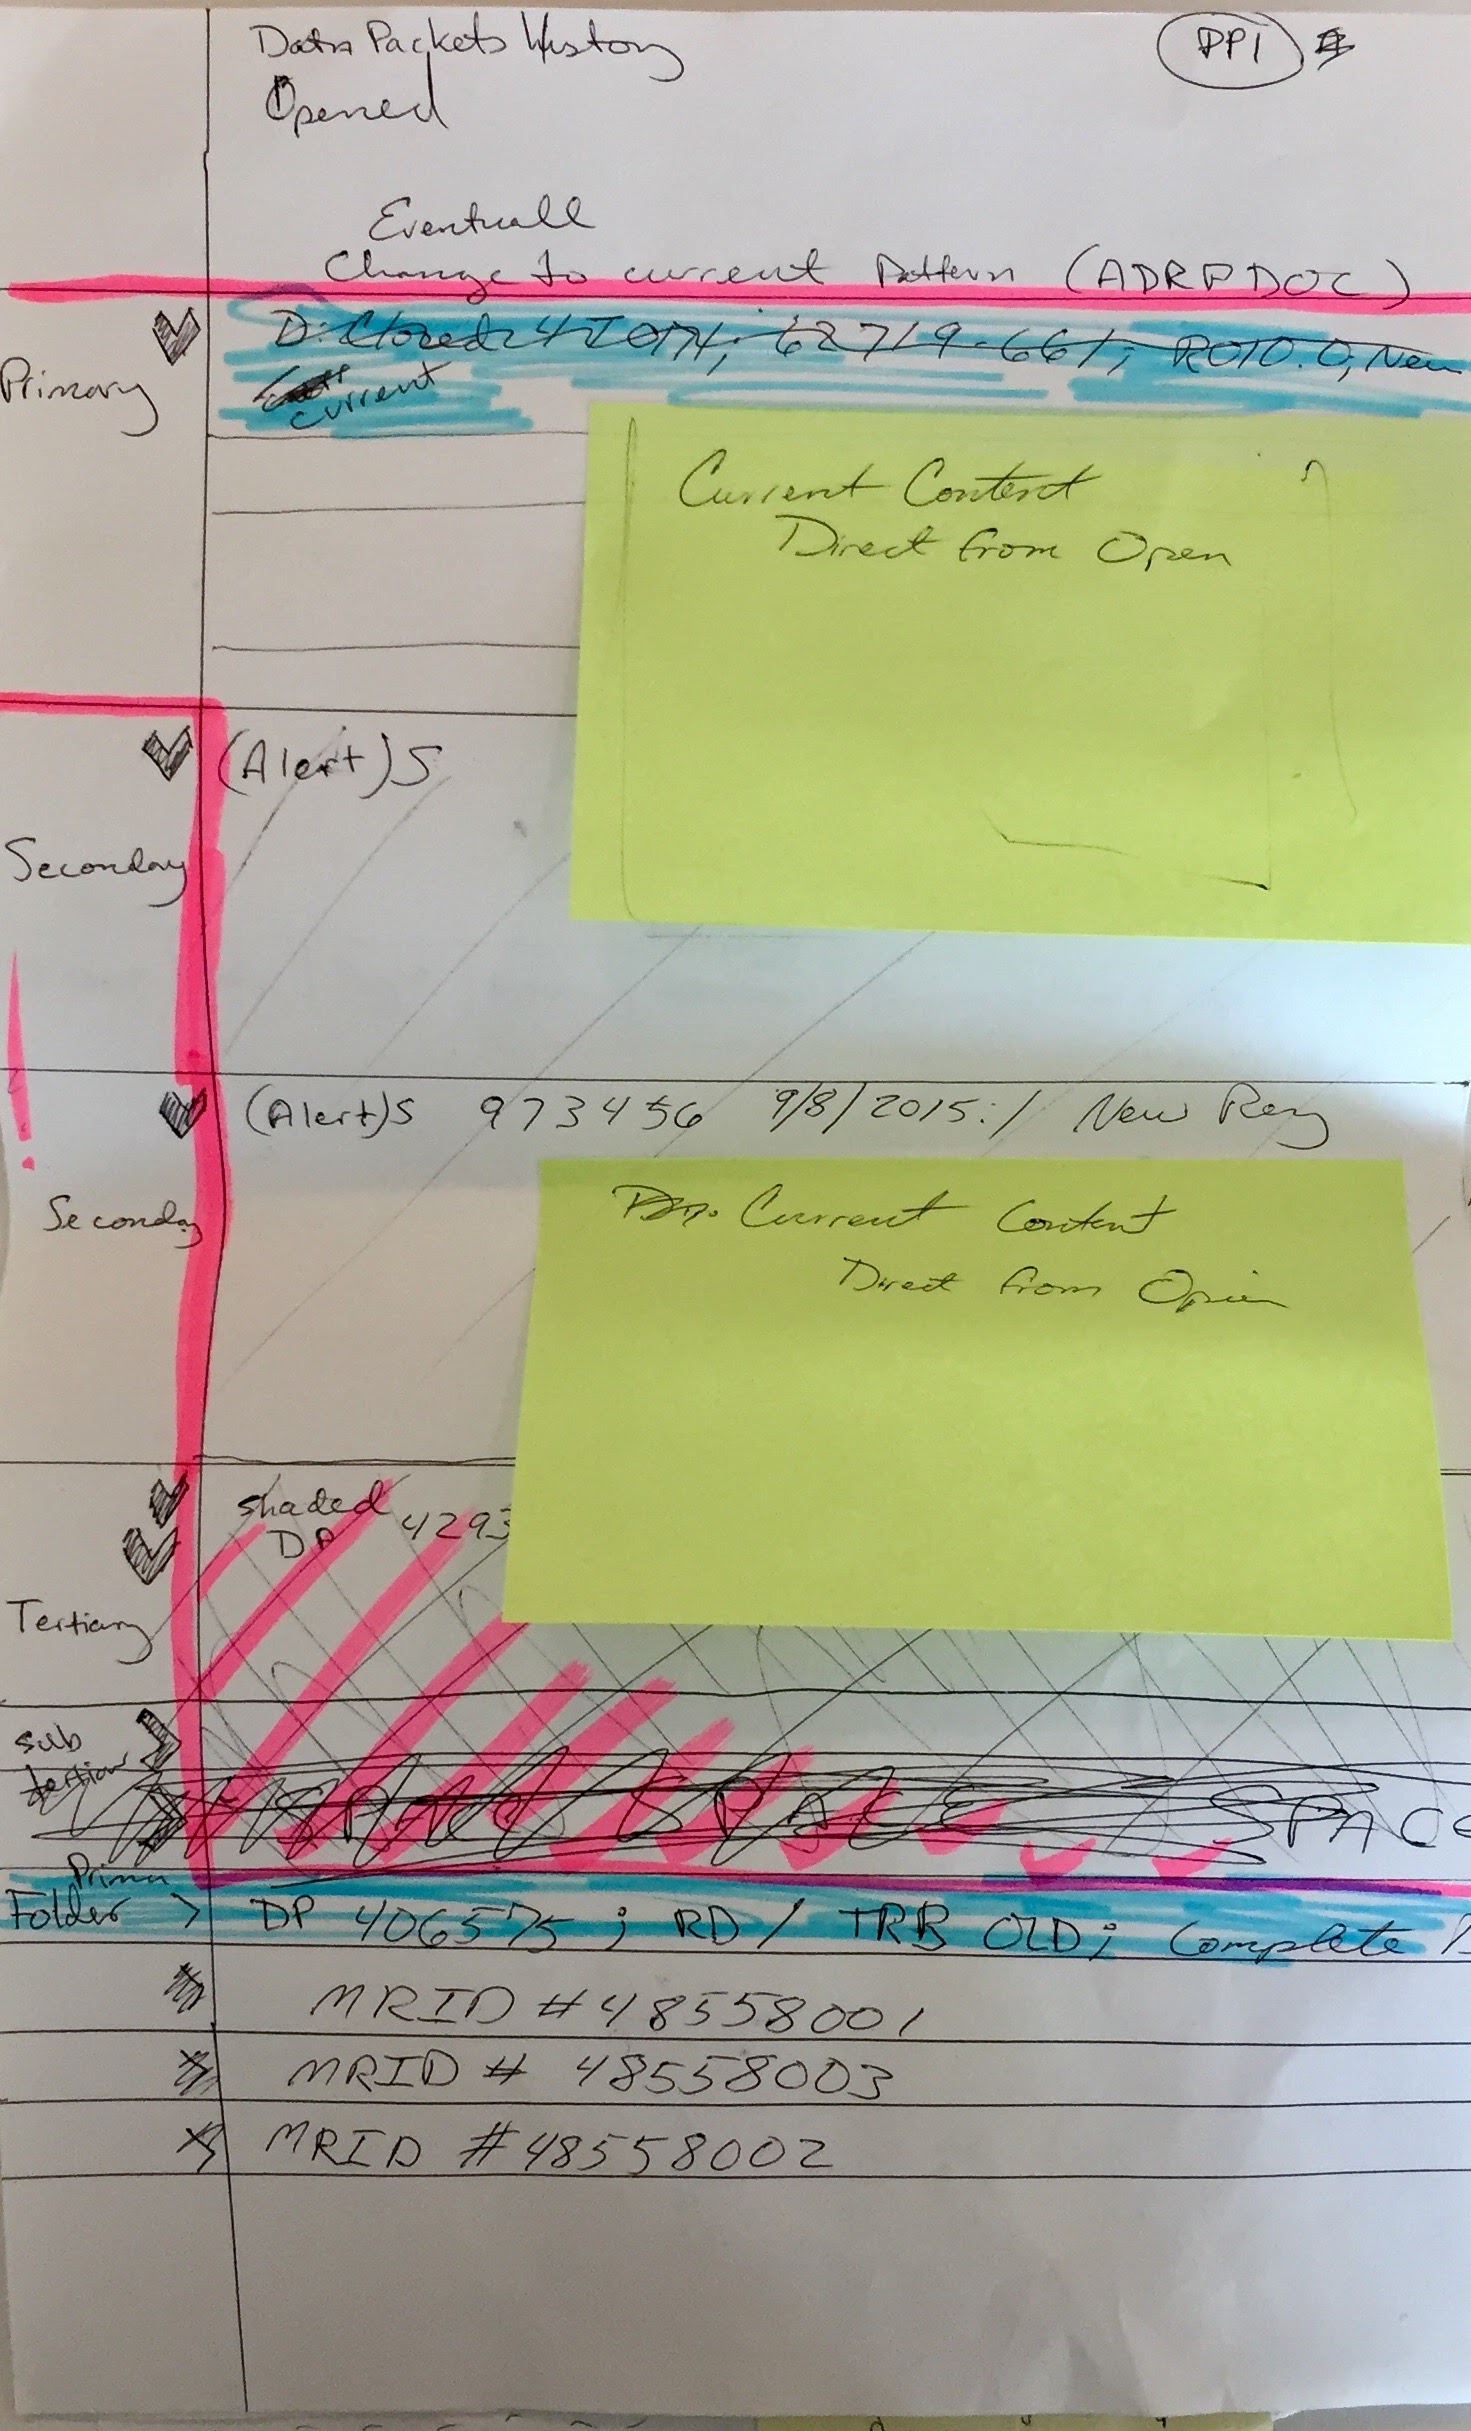 Data Packets History
DP1
Opened
Eventuall
Change to current Pattern (ADRPDOC)
Primary
D: Closed: ; 62719-661; R010.0; New
current
Current Content
Direct from Open
(Alert)S
Seconday
(Alert)S 973456 9/8/2015:/ New Reg
Seconday
Current Content
Direct from Open
shaded
DP 4293
Tertiary
sub
tertiary
SPACE SPACE
Folder > DP 406575 ; RD / TRB OLD; Complete
MRID #48558001
MRID # 48558003
MRID #48558002